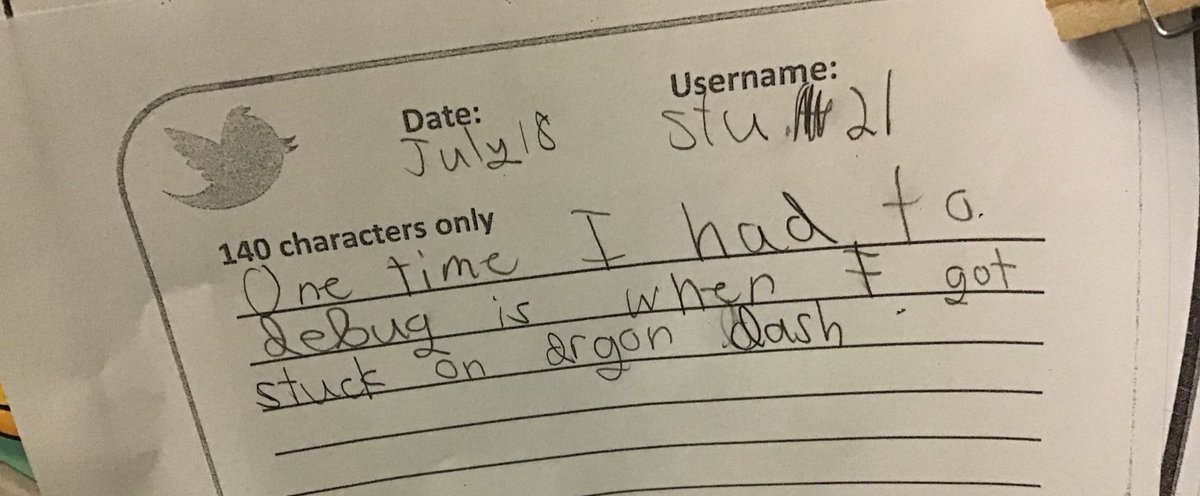 Date:
Username:
July 18
stu 21
140 characters only
One time I had to
debug is when I got
stuck on argon dash.